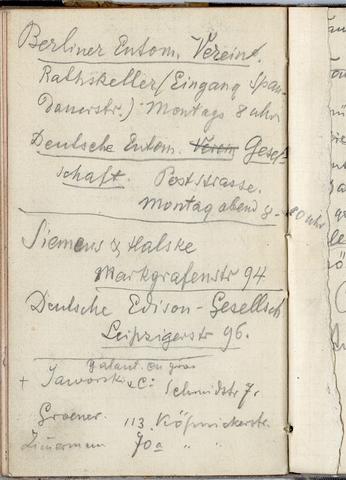 Berliner Entom. Verein.
Rathskeller (Eingang Span-
dauerstr.) Montags 8 uhr
Deutsche Entom. Verein Gesell-
schaft. Poststrasse.
Montag abend 8-10 uhr
Siemens & Halske
Markgrafenstr 94
Deutsche Edison-Gesellsch
Leipzigerstr 96.
Galant. en gros
+ Jaworski & C: Schmidtstr 7.
Groener. 113. Köpnickerstr.
Zimermann 70a " "